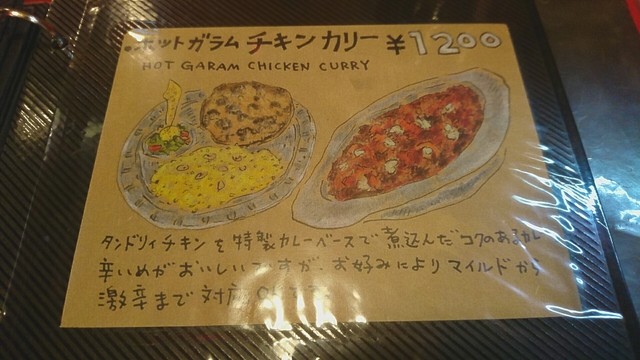 ・ホットガラムチキンカリー ¥1200
HOT GARAM CHICKEN CURRY
タンドリィチキンを特製カレーベースで煮込んだコクのあるカレー
辛いめがおいしいですが、お好みによりマイルドから
激辛まで対応